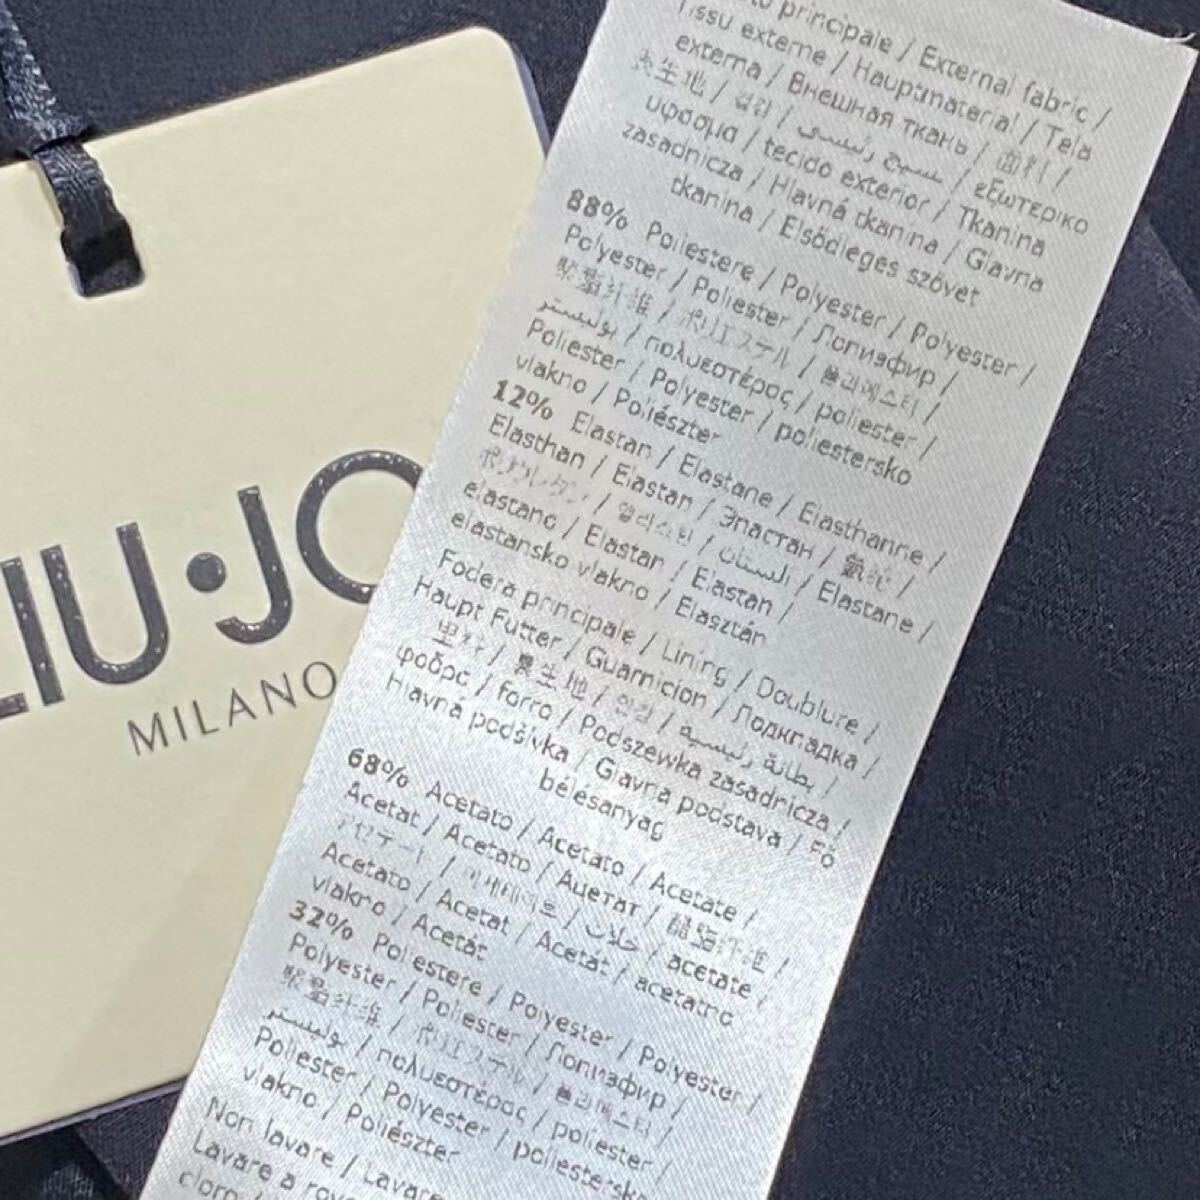 LIU·JO
MILANO
principale / External fabric /
Tissu externe / Hauptmaterial / Tela
externa / Внешная ткань / 面料 /
表生地 / 겉감 / نسيج رئيسي / εξωτερικο
υφασμα / tecido exterior / Tkanina
zasadnicza / Hlavná tkanina / Glavna
tkanina / Elsődleges szövet
88% Poliestere / Polyester / Polyester /
Polyester / Poliester / Полиэфир /
聚酯纤维 / ポリエステル / 폴리에스터 /
بوليستر / πολυεστέρας / poliester /
Poliester / Polyester / poliestersko
vlakno / Poliészter
12% Elastan / Elastane / Elasthanne /
Elasthan / Elastan / Эластан / 氨纶 /
ポリウレタン / 엘라스탄 / الاستان / Elastane /
elastano / Elastan / Elastan /
elastansko vlakno / Elasztán
Fodera principale / Lining / Doublure /
Haupt Futter / Guarnicion / Подкладка /
里料 / 裏生地 / 안감 / بطانة رئيسية /
φοδρα / forro / Podszewka zasadnicza /
Hlavná podšívka / Glavna podstava / Fő
bélésanyag
68% Acetato / Acetato / Acetate /
Acetat / Acetato / Ацетат / 醋酯纤维 /
アセテート / 아세테이트 / خلات / acetate /
Acetato / Acetat / Acetát / acetatno
vlakno / Acetát
32% Poliestere / Polyester / Polyester /
Polyester / Poliester / Полиэфир /
聚酯纤维 / ポリエステル / 폴리에스터 /
بوليستر / πολυεστέρας / poliester /
Poliester / Polyester / poliestersko
vlakno / Poliészter
Non lavare / Lavare
Lavare a
cloro /